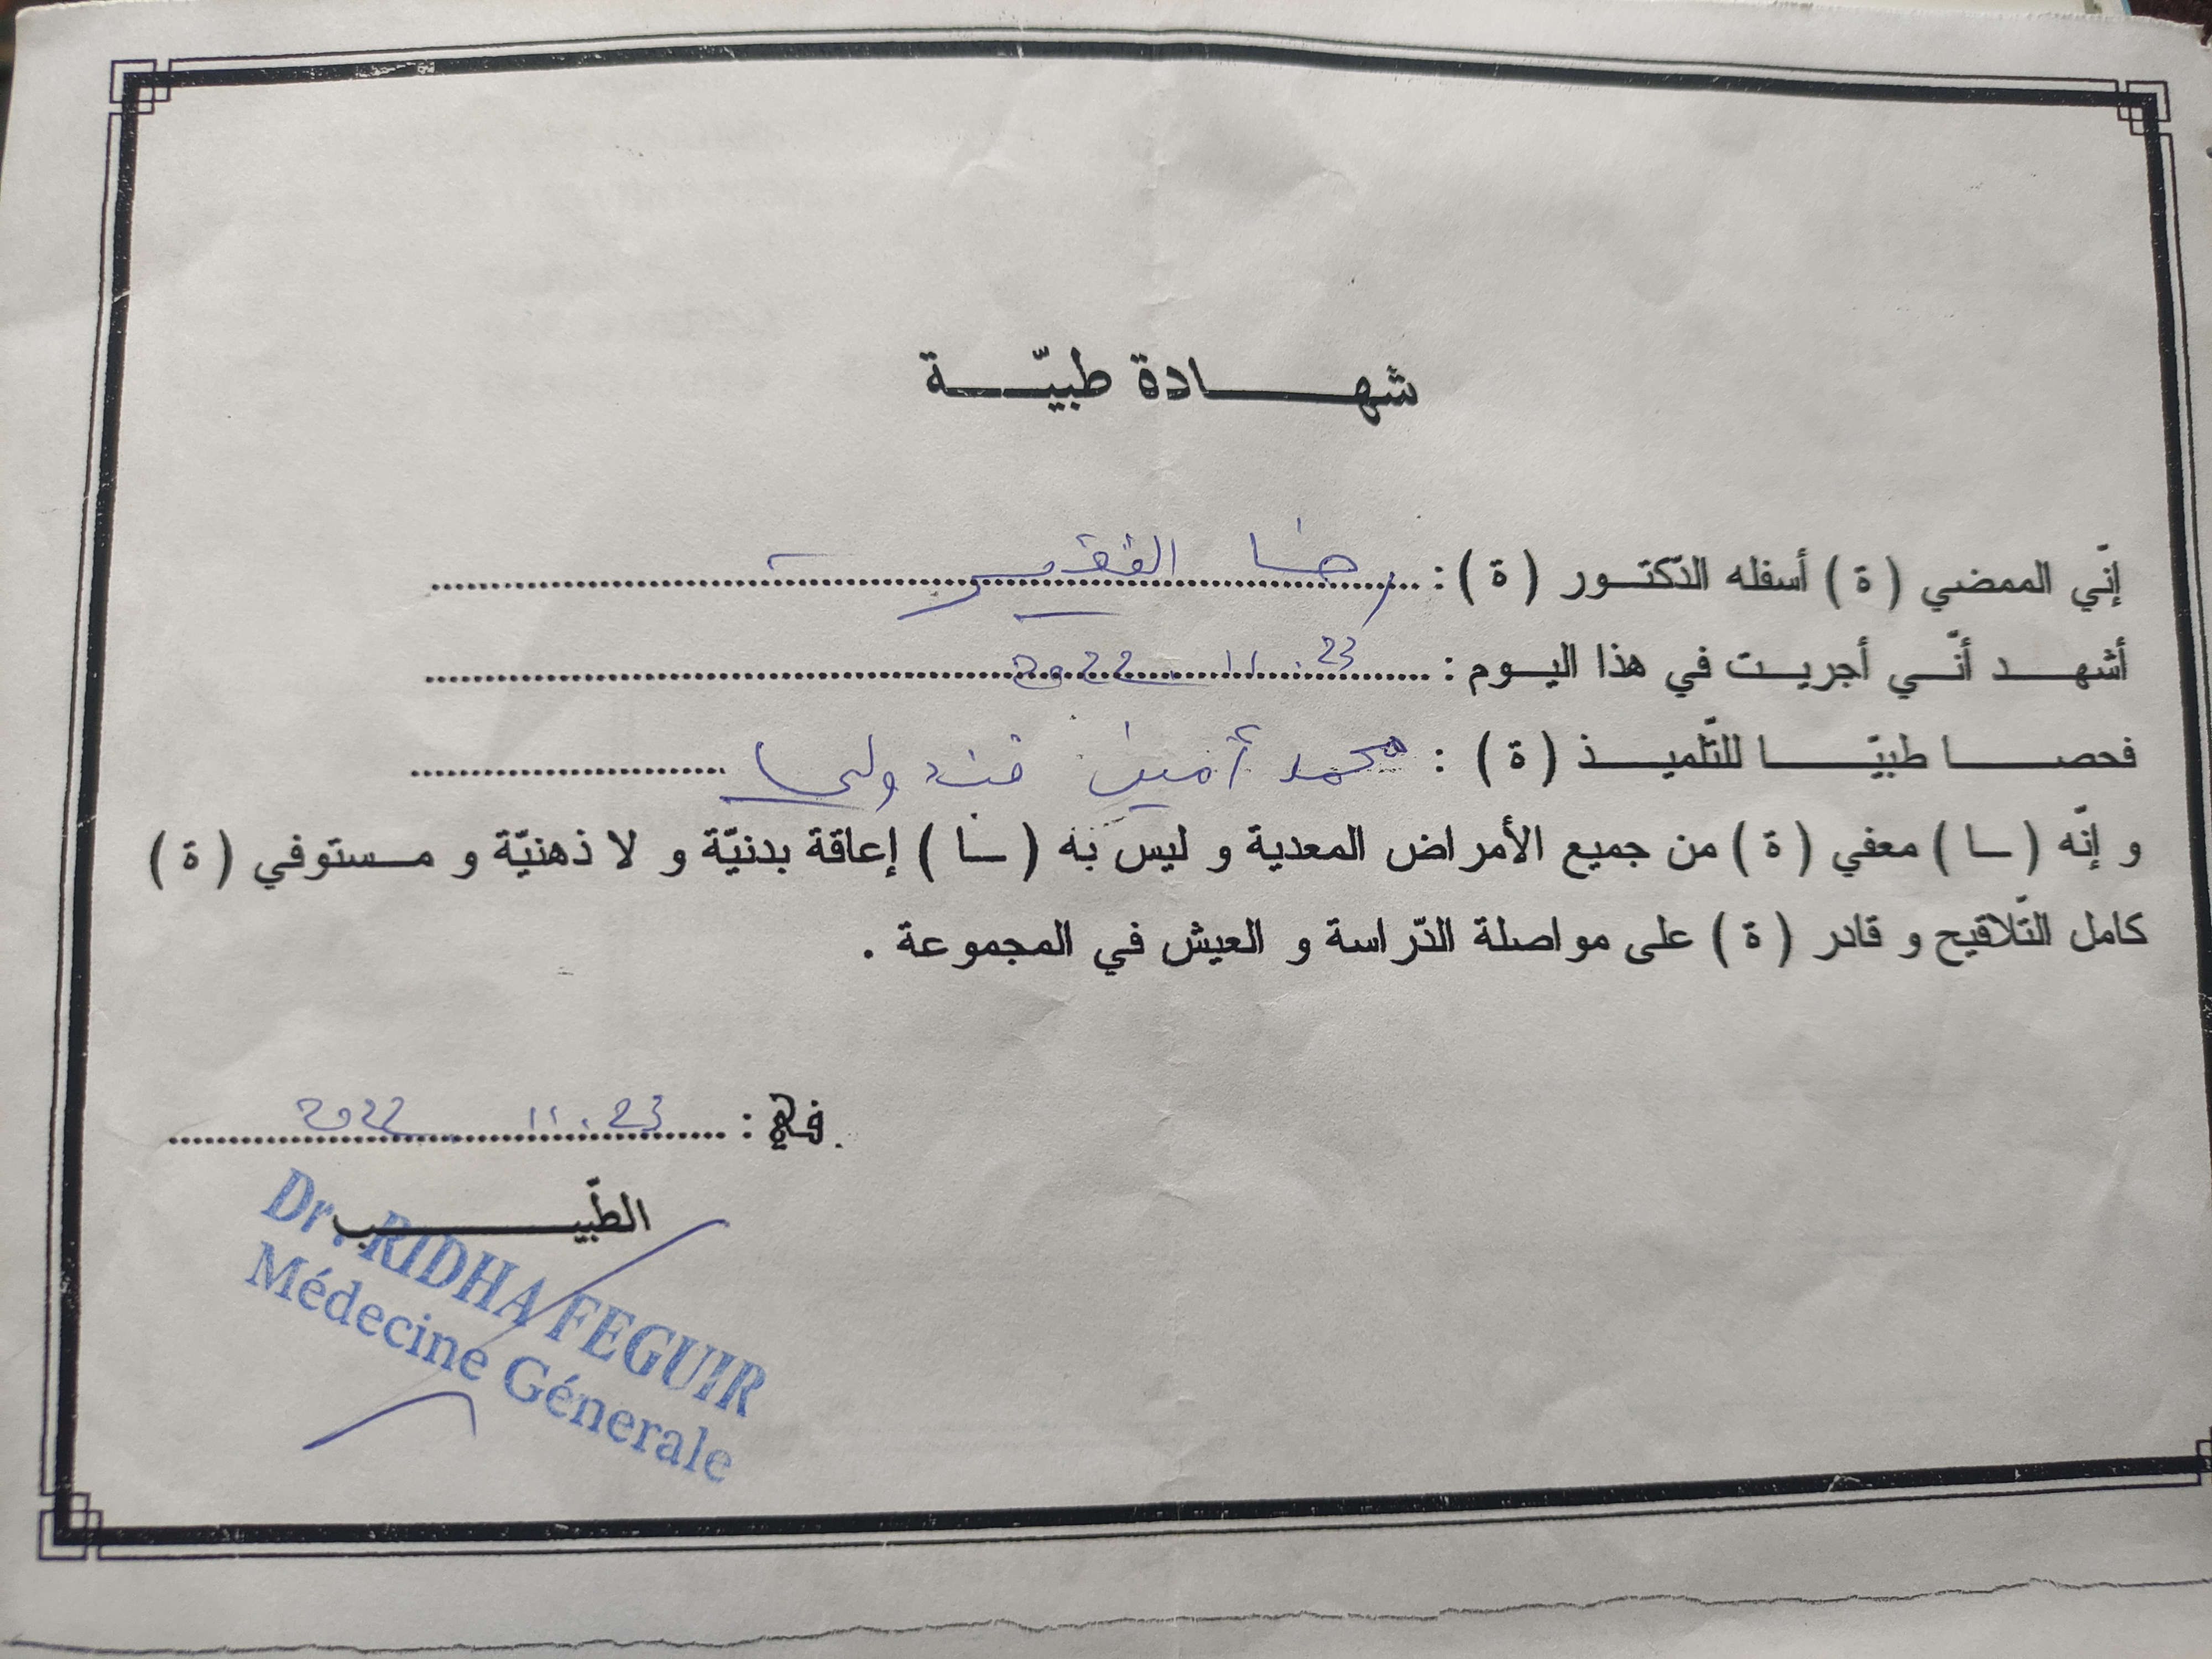 شهادة طبيّة
إنّي الممضي ( ة ) أسفله الدّكتور ( ة ) : رضا الفقير
أشهد أنّي أجريت في هذا اليوم : 23 . 11 . 2022
فحصا طبيّا للتّلميذ ( ة ) : محمد أمين
و إنّه ( ـا ) معفي ( ة ) من جميع الأمراض المعدية و ليس به ( ـا ) إعاقة بدنيّة و لا ذهنيّة و مستوفي ( ة )
كامل التّلاقيح و قادر ( ة ) على مواصلة الدّراسة و العيش في المجموعة .
في : 23 . 11 . 2022
الطّبيب
Dr. RIDHA FEGUIR
Médecine Génerale